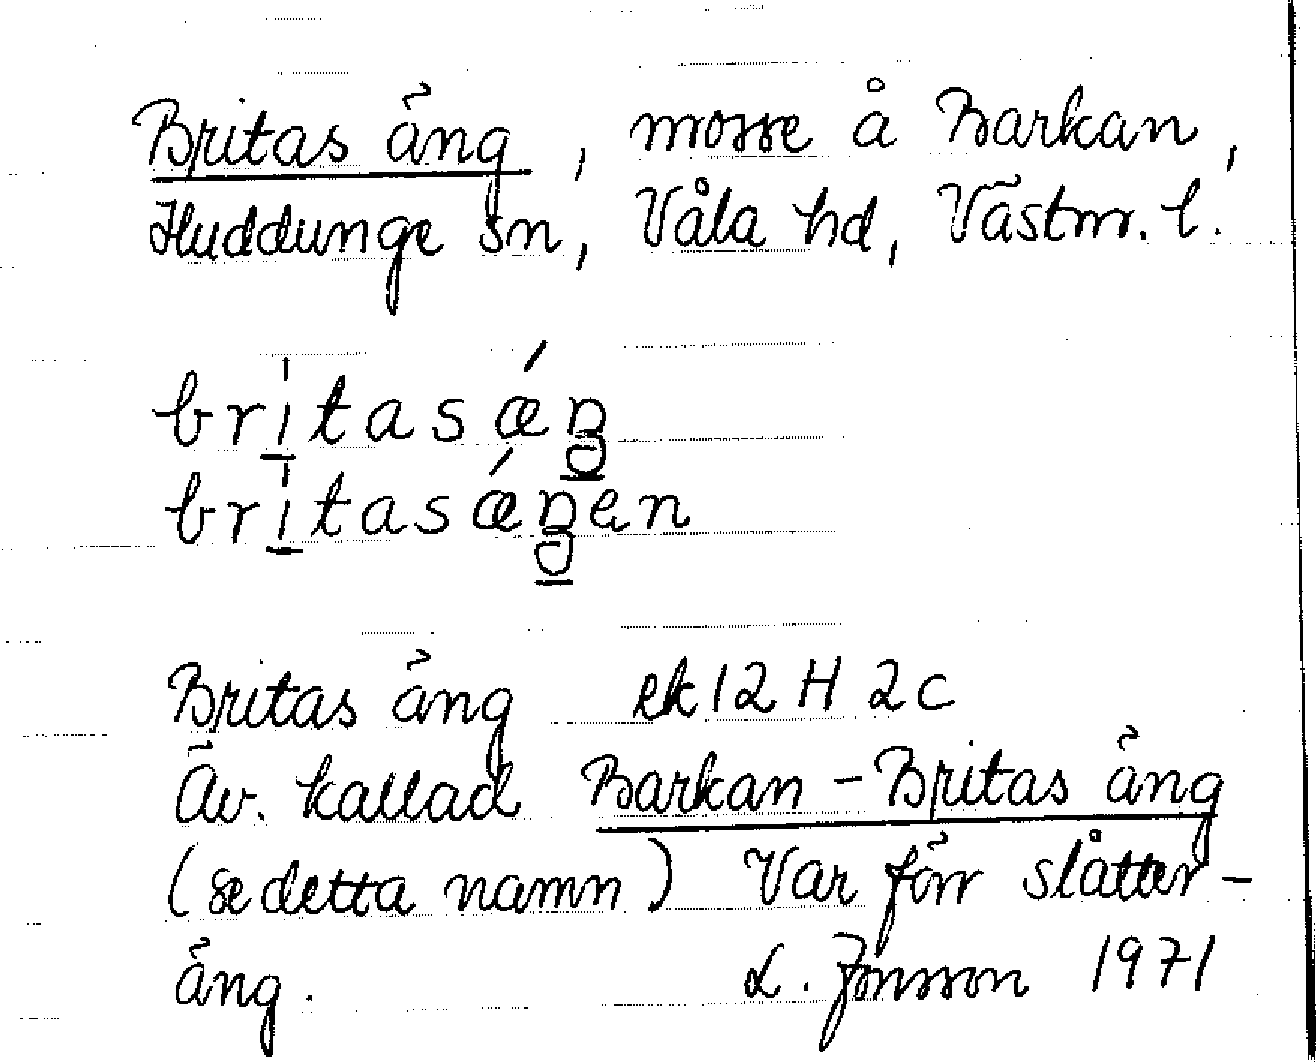 Britas äng, mosse å Barkan,
Huddunge sn, Våla hd, Västm. l.
britasǽŋ
britasǽŋen
Britas äng ek 12 H 2c
Äv. kallad Barkan-Britas äng
(se detta namn) Var förr slåtter-
äng. L. Jonsson 1971